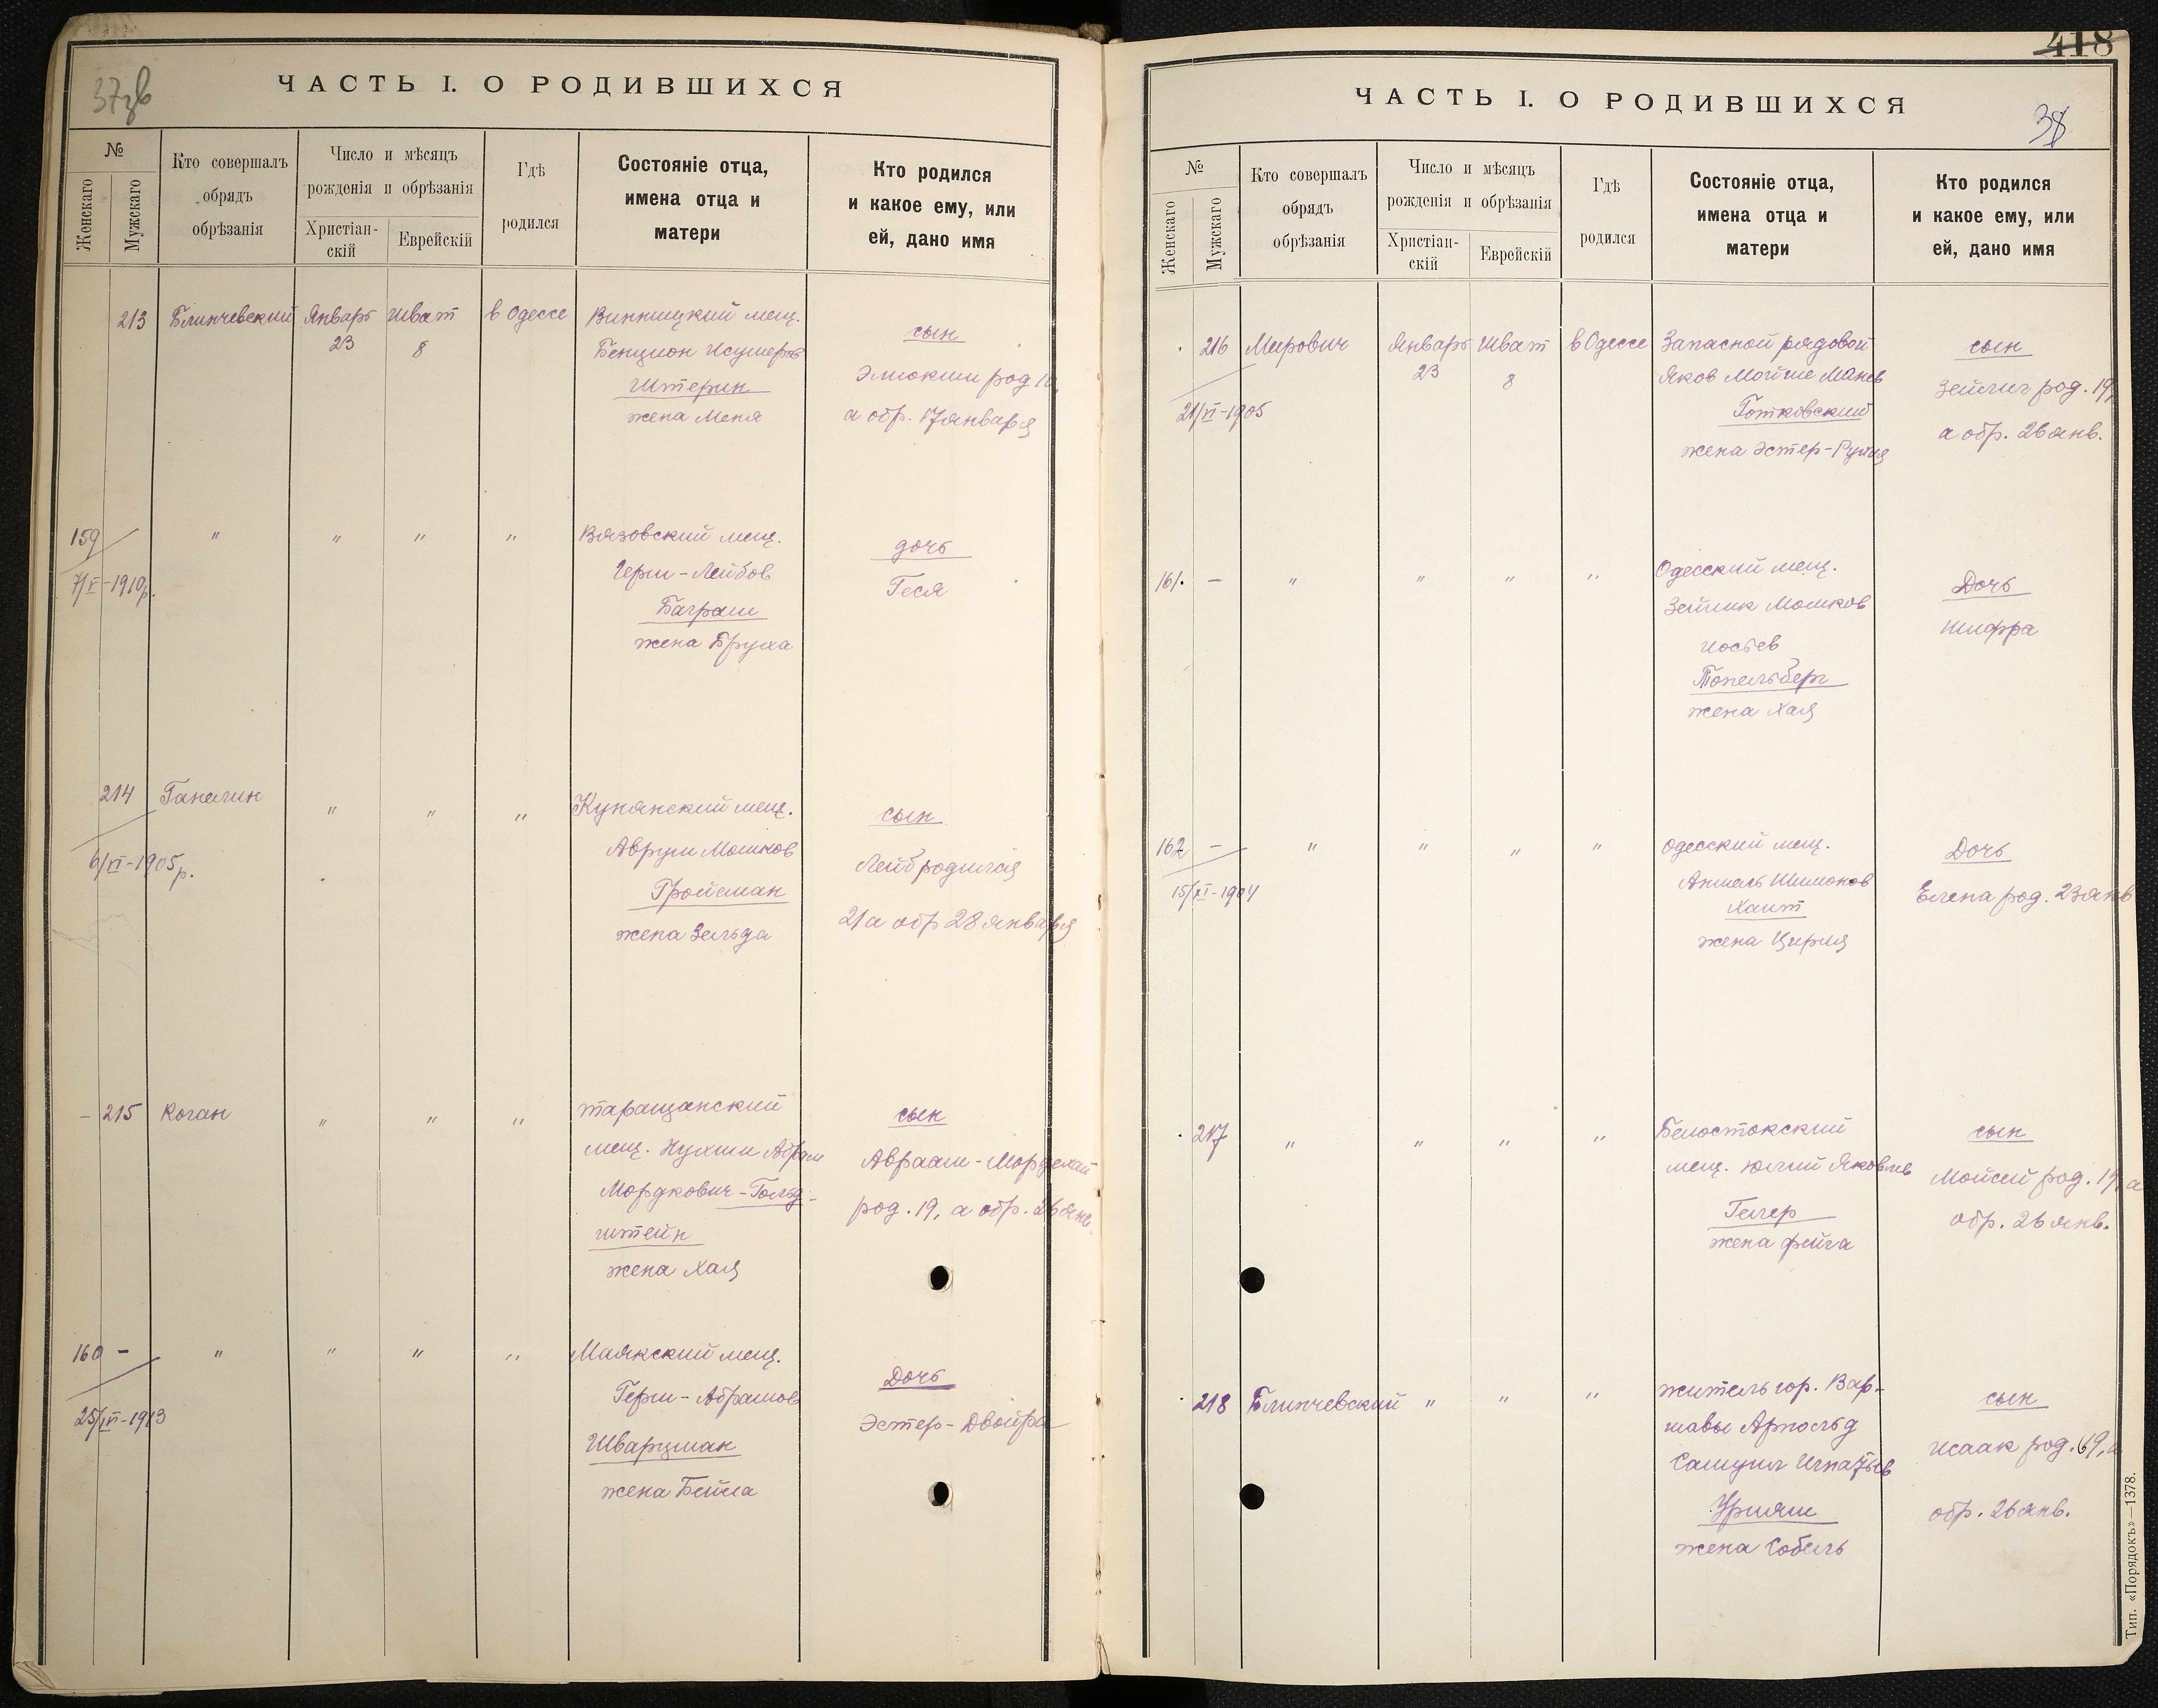 37зв
ЧАСТЬ I. О РОДИВШИХСЯ
№
Женскаго
Мужскаго
Кто совершалъ
обрядъ
обрѣзанія
Число и мѣсяцъ
рожденія и обрѣзанія
Христіан-
скій
Еврейскій
Гдѣ
родился
Состояніе отца,
имена отца и
матери
Кто родился
и какое ему, или
ей, дано имя
213 Блинчевский Январь Шват в Одессе Винницкий мещ.
23 8 Бенцион Исумеров
Штерин
жена Меня
сын
Элиоким род 10
а обр. 17 января
159 " " " " Вязовский мещ.
7/V-1910р. Герш-Лейбов
Баграш
жена Бруха
дочь
Геся
214 Ганелин " " " Купянский мещ.
6/VI-1905р. Аврум Мошков
Гройсман
жена Зельда
сын
Лейб родился
21 а обр 28 января
- 215 Коган " " " таращанский
мещ. Нухим Абрам
Мордкович-Гольд-
штейн
жена Хая
сын
Авраам-Мордехай
род. 19, а обр. 26 янв
160 - " " " " Маякский мещ.
25/VI-1913 Герш-Абрамов
Шварцман
жена Бейла
Дочь
Эстер-Двойра
418
ЧАСТЬ I. О РОДИВШИХСЯ
38
№
Женскаго
Мужскаго
Кто совершалъ
обрядъ
обрѣзанія
Число и мѣсяцъ
рожденія и обрѣзанія
Христіан-
скій
Еврейскій
Гдѣ
родился
Состояніе отца,
имена отца и
матери
Кто родился
и какое ему, или
ей, дано имя
216 Мирович Январь Шват в Одессе Запасной рядовой
23 8 Яков Мойше Манев
21/VI-1905 Готковский
жена Эстер-Рухля
сын
Зейлиг род. 19,
а обр. 26 янв.
161. - " " " " Одесский мещ.
Зейлик Мошков
Иосьев
Топельберг
жена Хая
Дочь
Шифра
162 - " " " " Одесский мещ.
15/XI-1904 Аншель Шимонов
Хаит
жена Цирля
Дочь
Елена род. 23 янв
217 " " " " Белостокский
мещ. Юлий Яковлев
Гелер
жена Фейга
сын
Мойсей род. 19, а
обр. 26 янв.
218 Блинчевский " " " житель гор. Вар-
шавы Арнольд
Самуил Игнатьев
Уриаш
жена Собель
сын
Исаак род. 19, а
обр. 26 янв.
Тип. «Порядокъ»—1378.